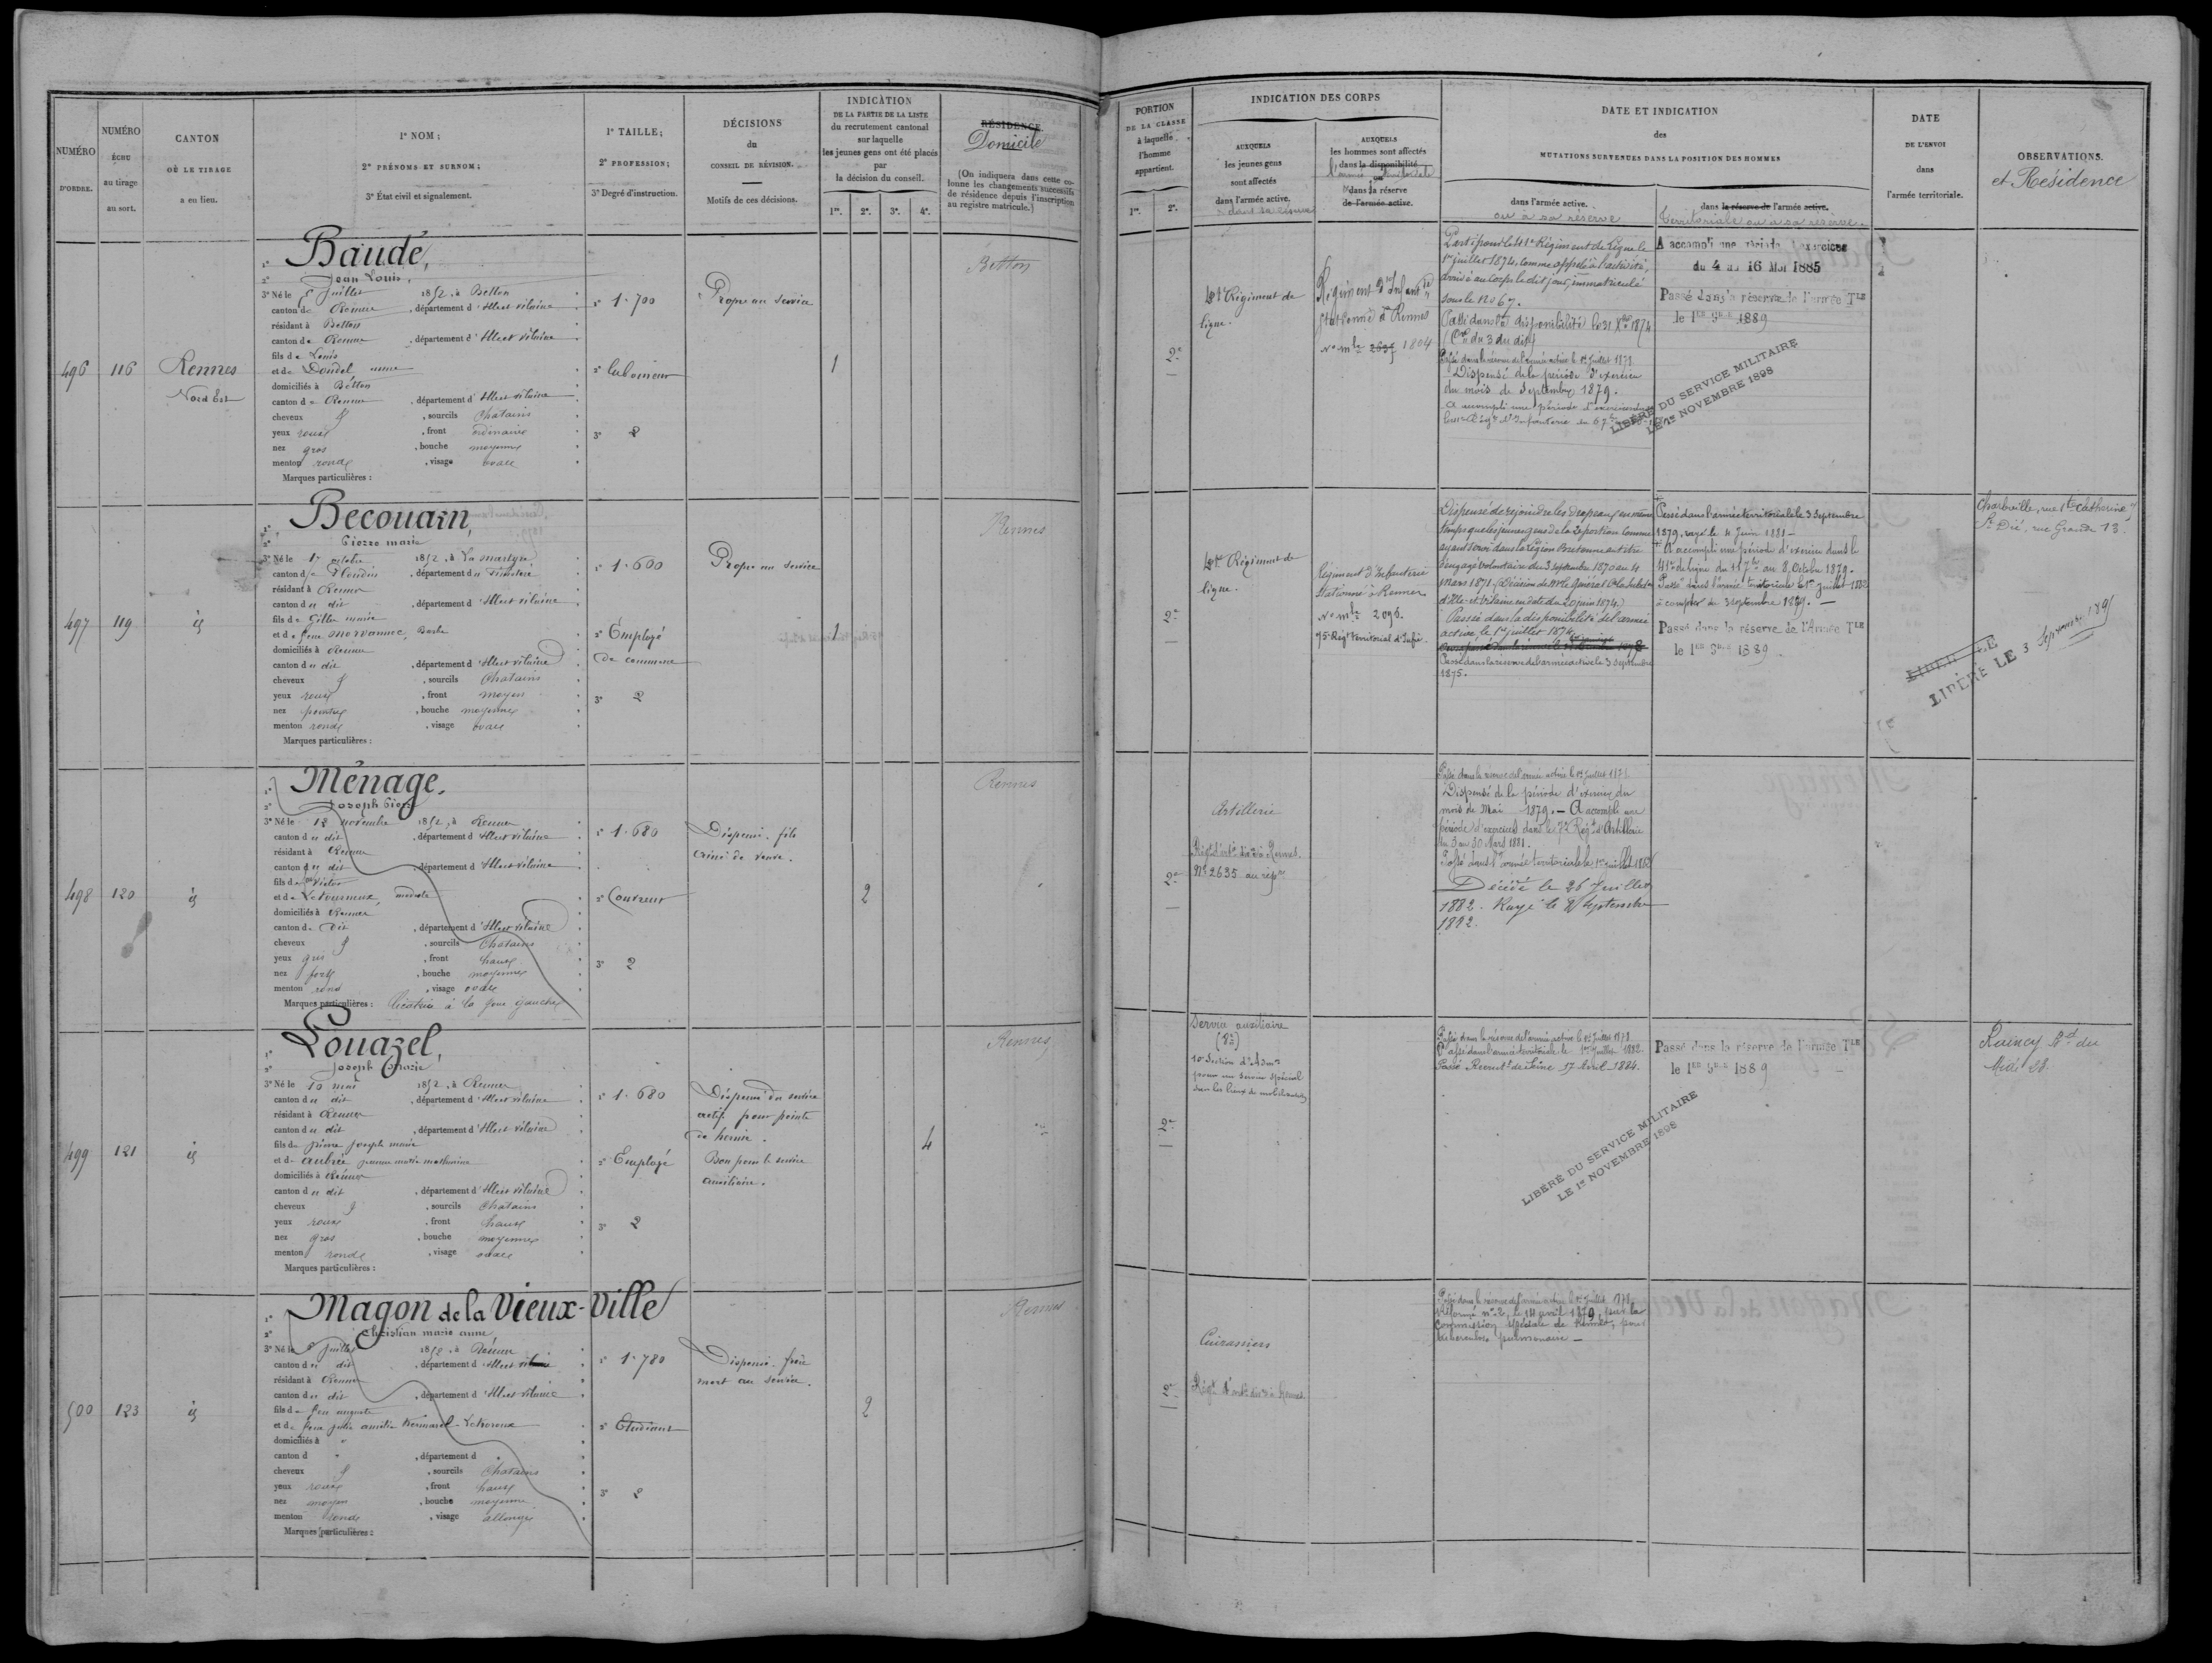 NUMÉRO
D'ORDRE.
NUMÉRO
ÉCHU
au tirage
au sort.
CANTON
OÙ LE TIRAGE
a eu lieu.
1º NOM;
2º PRÉNOMS ET SURNOM;
3º État civil et signalement.
1º TAILLE;
2º PROFESSION;
3º Degré d'instruction.
DÉCISIONS
du
CONSEIL DE RÉVISION.
Motifs de ces décisions.
INDICATION
DE LA PARTIE DE LA LISTE
du recrutement cantonal
sur laquelle
les jeunes gens ont été placés
par
la décision du conseil.
1re. 2e. 3e. 4e.
RÉSIDENCE
Domicile
(On indiquera dans cette co-
lonne les changements successifs
de résidence depuis l'inscription
au registre matricule.)
PORTION
DE LA CLASSE
à laquelle
l'homme
appartient.
1re. 2e.
INDICATION DES CORPS
AUXQUELS
les jeunes gens
sont affectés
dans l'armée active.
AUXQUELS
les hommes sont affectés
dans la disponibilité
ou
dans la réserve
de l'armée active.
DATE ET INDICATION
des
MUTATIONS SURVENUES DANS LA POSITION DES HOMMES
dans l'armée active.
ou à sa réserve
dans la réserve de l'armée active.
Territoriale ou à sa réserve.
DATE
DE L'ENVOI
dans
l'armée territoriale.
OBSERVATIONS.
et Résidence
496
116
Rennes
Nord Est
Baudé,
Jean Louis,
3º Né le 5 Juillet 1852, à Betton
canton de Rennes, département d'Ille et Vilaine
résidant à Betton
canton de Rennes, département d'Ille et Vilaine
fils de Louis
et de Doudel anne
domiciliés à Betton
canton de Rennes, département d'Ille et Vilaine
cheveux, sourcils Chatains
yeux roux, front ordinaire
nez gros, bouche moyenne
menton rond, visage ovale
Marques particulières :
1º 1.700
2º laboureur
3º 2
Propre au service
1
Betton
2e
Régiment de
ligne.
Régiment d'Infanterie
stationné à Rennes
No mle 2695 1804
Parti pour le 41e Régiment de ligne le
1er juillet 1874, comme appelé à l'activité,
arrivé au corps le dit jour, immatriculé
sous le No 67.
Passé dans la disponibilité le 31 Xbre 1874
du 3 du dit
Passé dans la réserve de l'armée active le 1er Juillet 1878.
Dispensé de la période d'exercices
du mois de Septembre 1879.
A accompli une période d'exercices
A accompli une période d'exercices
du 4 au 16 Mai 1885
Passé dans la réserve de l'armée Tle
le 1er 9bre 1889
LIBÉRÉ DU SERVICE MILITAIRE
LE 1er NOVEMBRE 1898
497
119
id
Becouarn,
Pierre marie
3º Né le 17 octobre 1852, à La martyre
canton de Ploudiry, département du Finistère
résidant à Rennes
canton du dit, département d'Ille et Vilaine
fils de Gilles marie
et de feue Morvannec, Barbe
domiciliés à Rennes
canton du dit, département d'Ille et Vilaine
cheveux, sourcils Chatains
yeux roux, front moyen
nez pointu, bouche moyenne
menton rond, visage ovale
Marques particulières :
1º 1.600
2º Employé
de commerce
3º 2
Propre au service
1
Rennes
2e
Régiment de
ligne.
Régiment d'Infanterie
stationné à Rennes
No mle 2096.
75e Régt territorial d'Infie
Dispensé de rejoindre les drapeaux en même
temps que les jeunes gens de la 2e portion comme
ayant servi dans la région Bretonne en titre
d'engagé volontaire du 3 septembre 1870 au 4
mars 1871. (Décision de Mr le Général
d'Ille-et-Vilaine en date du 20 juin 1874.)
Passé dans la disponibilité de l'armée
active, le 1er juillet 1874.
Passé dans la réserve de l'armée active le 3 Septembre
1875.
Passé dans l'armée territoriale le 3 Septembre
1879, rayé le 4 Juin 1881 –
A accompli une période d'exercices dans le
41e de ligne du 11 7bre au 8 Octobre 1879.
Passé dans l'armée territoriale le 1er juillet 1882
à compter du 3 septembre 1879. –
Passé dans la réserve de l'Armée Tle
le 1er 9bre 1889
LIBÉRÉ LE
LIBÉRÉ LE 3 Septembre 1891
Charleville, rue Ste Catherine, 7
St Dié, rue Grande 13.
498
120
id
Ménage.
Joseph Pierre
3º Né le 13 novembre 1852, à Rennes
canton du dit, département d'Ille et Vilaine
résidant à Rennes
canton du dit, département d'Ille et Vilaine
fils de Victor
et de Letourneux, modeste
domiciliés à Rennes
canton du dit, département d'Ille et Vilaine
cheveux, sourcils Chatains
yeux gris, front haut
nez fort, bouche moyenne
menton rond, visage ovale
Marques particulières : Cicatrice à la joue gauche
1º 1.680
2º Couvreur
3º 2
Dispensé. fils
ainé de veuve.
2
Rennes
2e
Artillerie
No 2635 au répre
Passé dans la réserve de l'armée active le 1er Juillet 1878.
Dispensé de la période d'exercices du
mois de Mai 1879. – A accompli une
période d'exercices dans le 7e Régt d'Artillerie
du 3 au 30 Mars 1881.
Passé dans l'armée territoriale le 1er juillet 1882
Décédé le 26 Juillet
1882. Rayé le 2 Septembre
1882.
499
121
id
Louazel,
Joseph Marie
3º Né le 10 mai 1852, à Rennes
canton du dit, département d'Ille et Vilaine
résidant à Rennes
canton du dit, département d'Ille et Vilaine
fils de pierre joseph marie
et de Aubrée jeanne marie mathurine
domiciliés à Rennes
canton du dit, département d'Ille et Vilaine
cheveux, sourcils Chatains
yeux roux, front haut
nez gros, bouche moyenne
menton rond, visage ovale
Marques particulières :
1º 1.680
2º Employé
3º 2
Dispensé du service
actif pour pointe
de hernie.
Bon pour le service
auxiliaire.
4
Rennes
2e
Service auxiliaire
10e Section d'Admon
pour un service spécial
sur les lieux de mobilisation
Passé dans la réserve de l'armée active le 1er Juillet 1878
Passé dans l'armée territoriale le 1er Juillet 1882.
Passé Recrutt de Seine 17 Avril 1884.
Passé dans la réserve de l'armée Tle
le 1er 9bre 1889
LIBÉRÉ DU SERVICE MILITAIRE
LE 1er NOVEMBRE 1898
Raincy Bd du
Midi 28
500
123
id
Magon de la Vieux-Ville
Christian marie anne
3º Né le 8 Juillet 1852, à Rennes
canton du dit, département d'Ille et Vilaine
résidant à Rennes
canton du dit, département d'Ille et Vilaine
fils de feu auguste
et de feue julie amélie
domiciliés à "
canton d ", département d "
cheveux, sourcils Chatains
yeux roux, front haut
nez moyen, bouche moyenne
menton rond, visage allongé
Marques particulières :
1º 1.780
2º Etudiant
3º 2
Dispensé. frère
mort au service.
2
Rennes
2e
Cuirassiers
Passé dans la réserve de l'armée active le 1er Juillet 1878.
Réformé no 2, le 14 avril 1879, par la
Commission spéciale de Rennes, pour
tubercules pulmonaires –